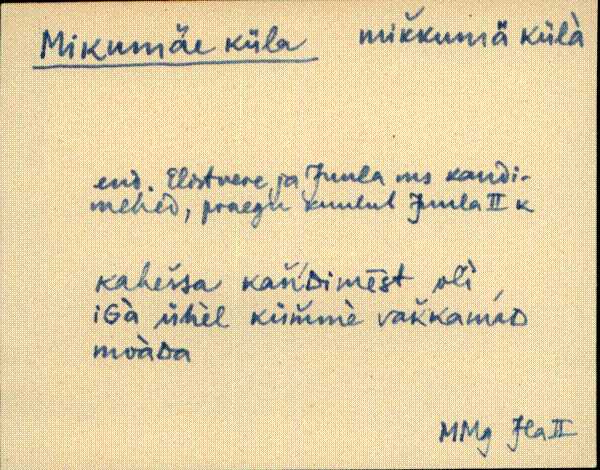 Mikumäe küla mik̆kumä külà
end. Elistvere ja Juula ms kandi-
mehed, praegu kuulub Juula II k
kaheššа kan̆'Dimēst oli̇̀
iGà ühèl küm̆mè vak̆kamáD
moàDa
MMg Jla II